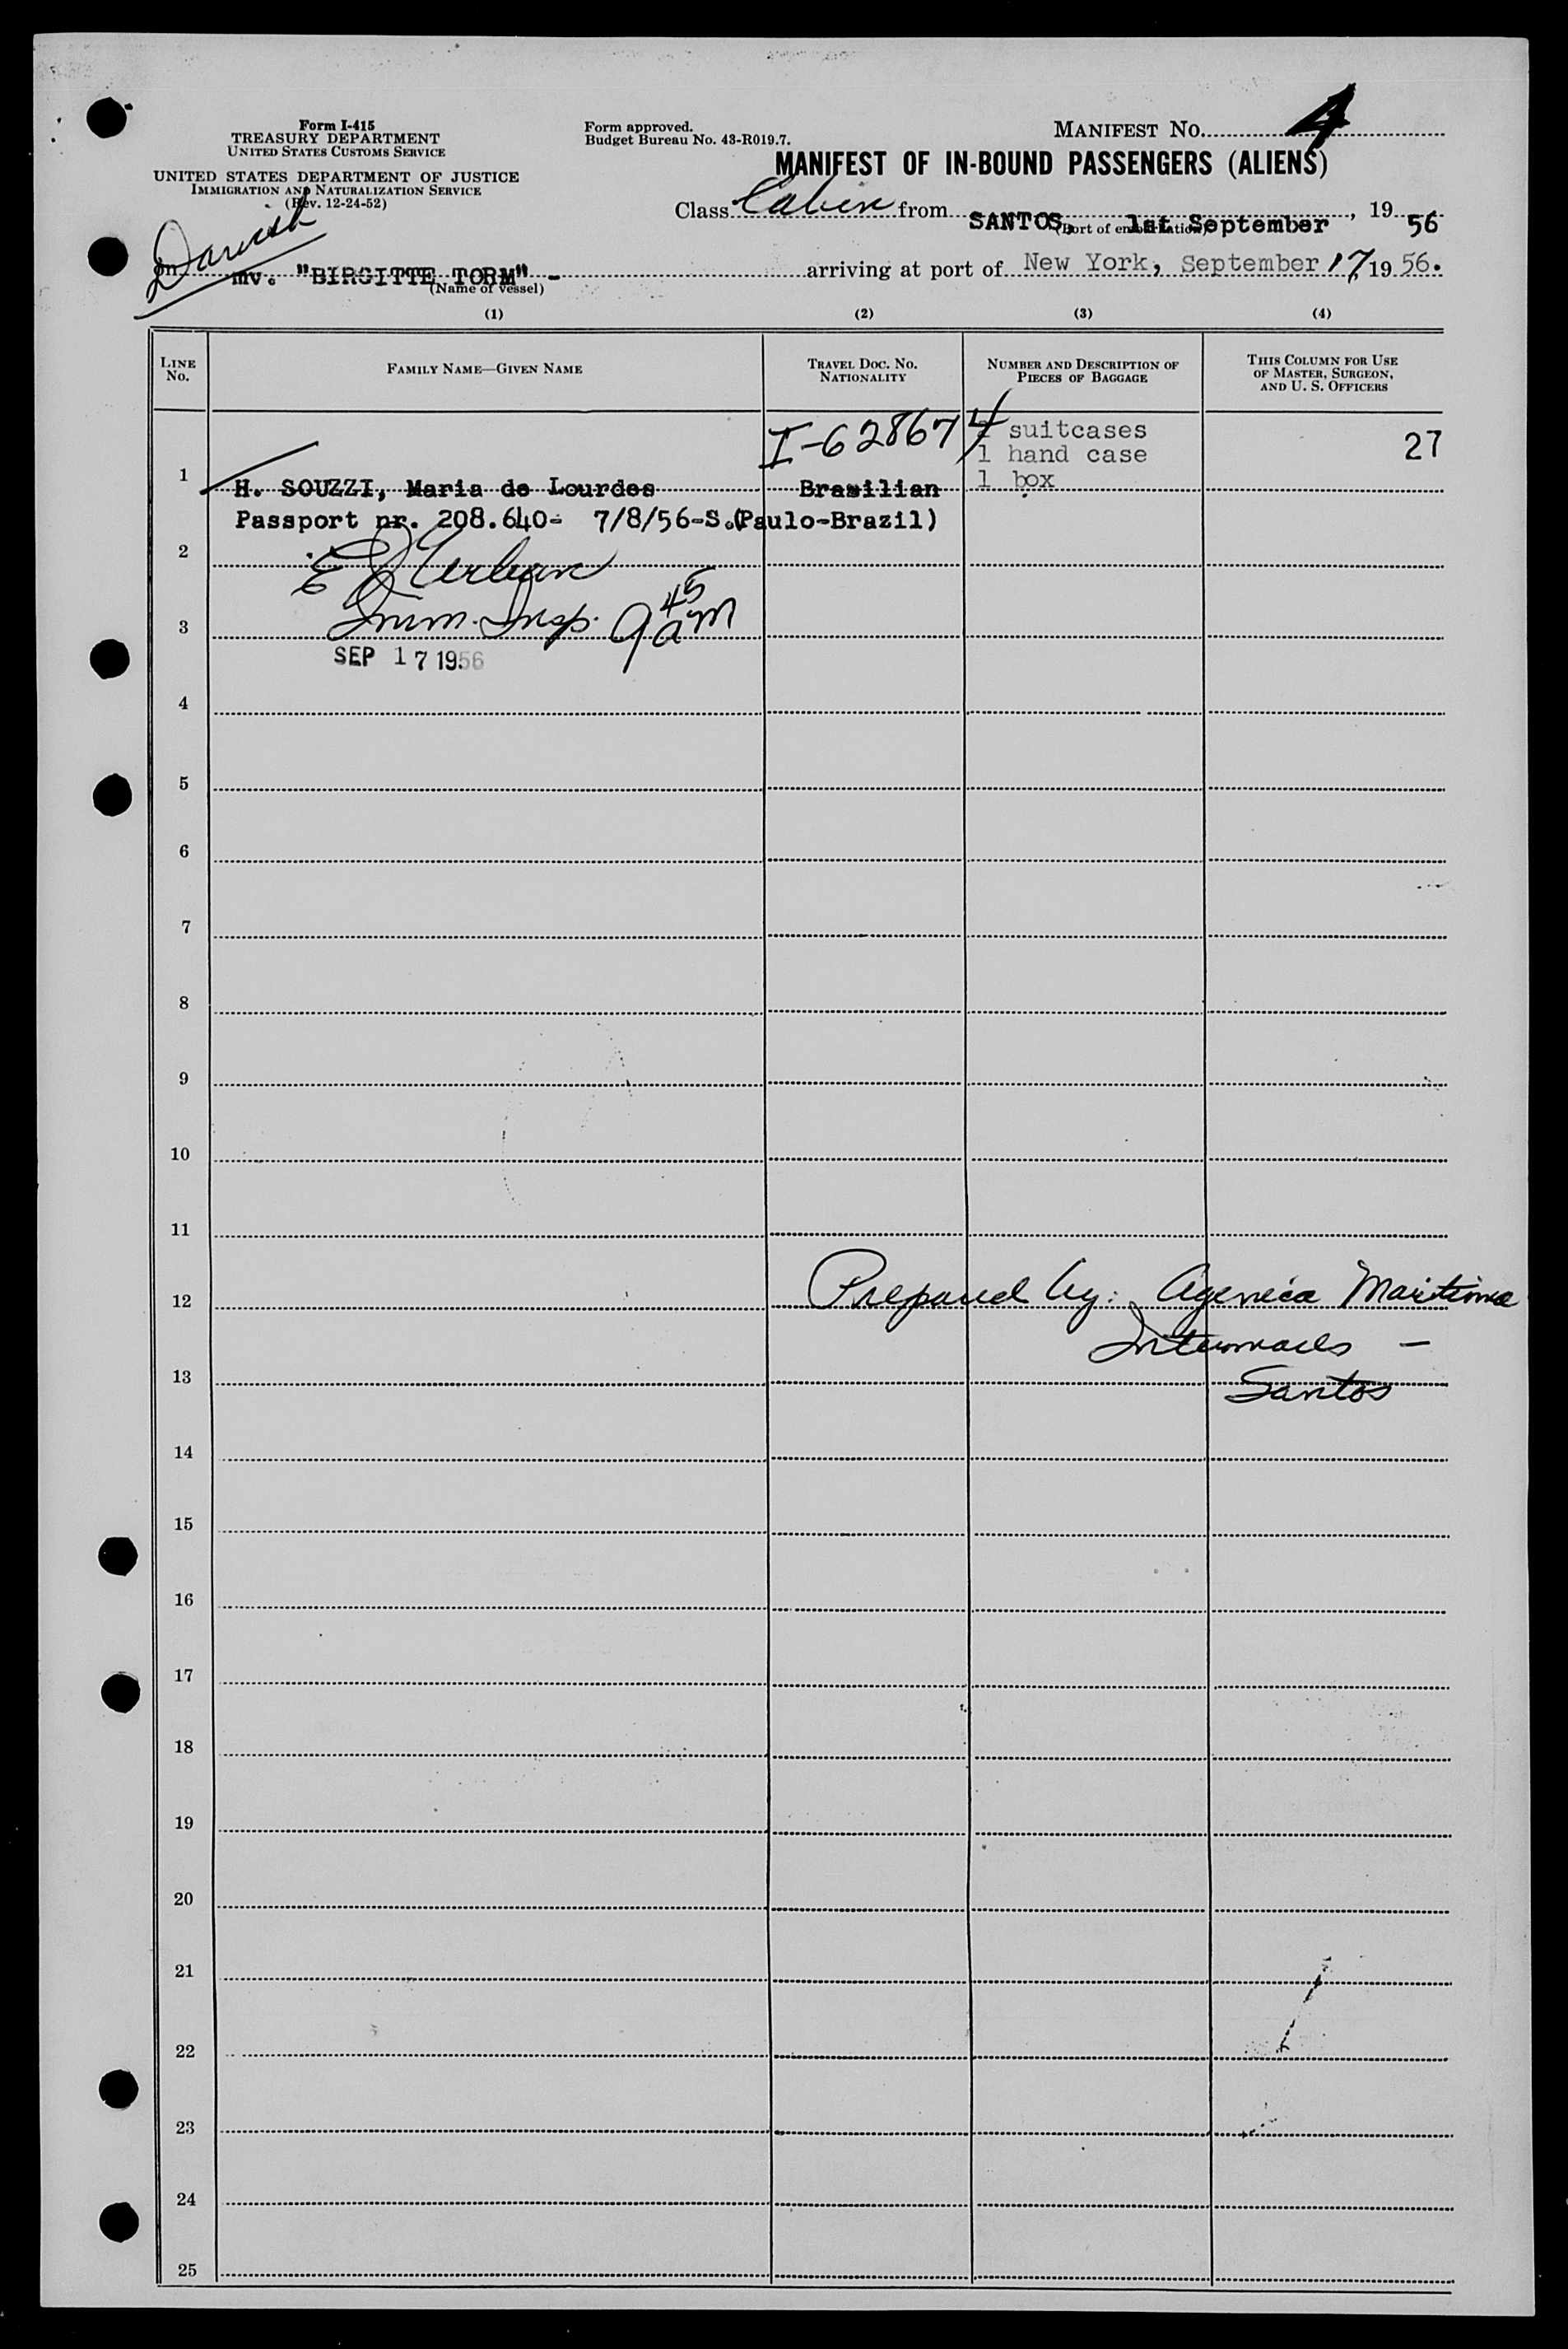 Form I-415
TREASURY DEPARTMENT
UNITED STATES CUSTOMS SERVICE
UNITED STATES DEPARTMENT OF JUSTICE
IMMIGRATION AND NATURALIZATION SERVICE
(Rev. 12-24-52)
Form approved.
Budget Bureau No. 43-R019.7.
MANIFEST NO. 4
MANIFEST OF IN-BOUND PASSENGERS (ALIENS)
Class Cabin from SANTOS, 1st September, 19 56
(Port of embarkation)
Danish
on mv. "BIRGITTE TORM" - arriving at port of New York, September 17, 19 56.
(Name of vessel)
(1) (2) (3) (4)
LINE NO. FAMILY NAME—GIVEN NAME TRAVEL DOC. NO. NATIONALITY NUMBER AND DESCRIPTION OF PIECES OF BAGGAGE THIS COLUMN FOR USE OF MASTER, SURGEON, AND U. S. OFFICERS
I-62867 4 suitcases 27
1 hand case
1 H. SOUZZI, Maria de Lourdes Brasilian 1 box
Passport nr. 208.640- 7/8/56-S.(Paulo-Brazil)
2 E
3 Imm. Insp. 9 45 am
SEP 17 1956
4
5
6
7
8
9
10
11
12 Prepared by: Agencia Maritima
Intermares -
13 Santos
14
15
16
17
18
19
20
21
22
23
24
25